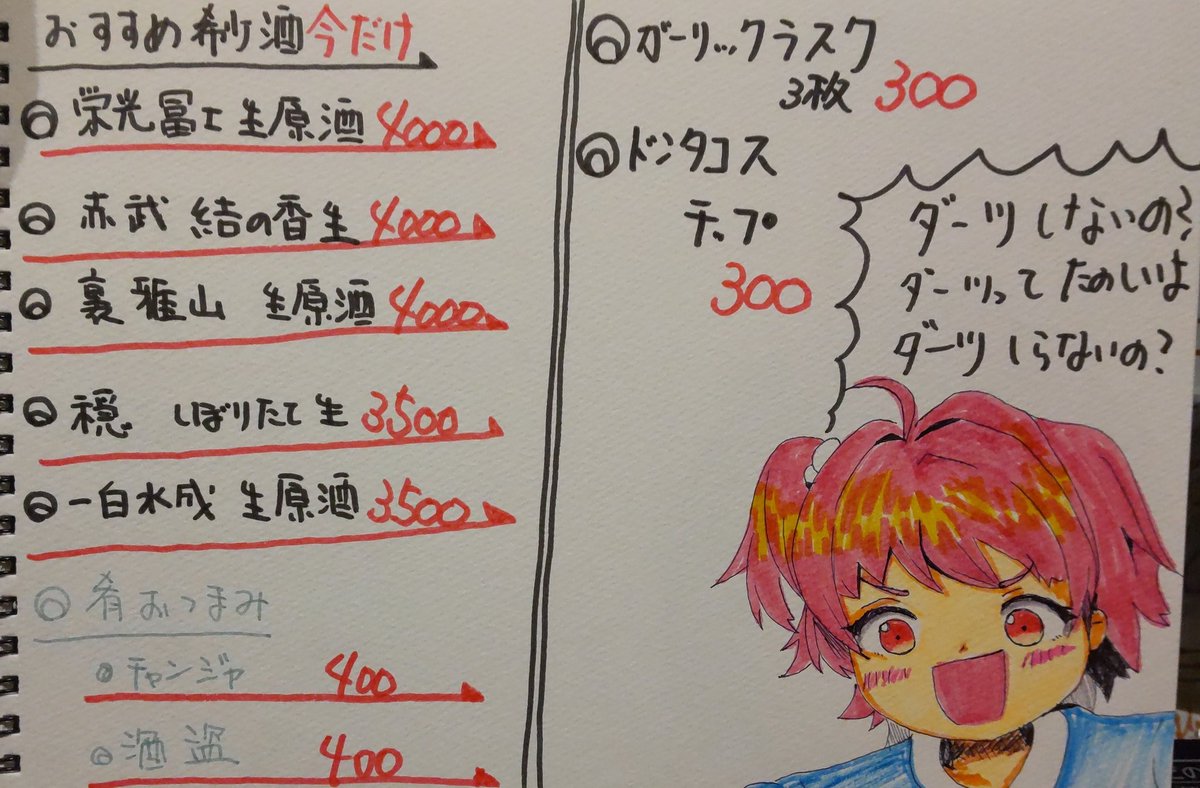 おすすめ希少酒今だけ
栄光冨士生原酒 4000
赤武 結の香生 4000
裏雅山 生原酒 4000
穏 しぼりたて生 3500
一白水成 生原酒 3500
肴おつまみ
チャンジャ 400
酒盗 400
ガーリックラスク
3枚 300
ドンタコス
チップ
300
ダーツしないの?
ダーツってたのしいよ
ダーツしらないの?